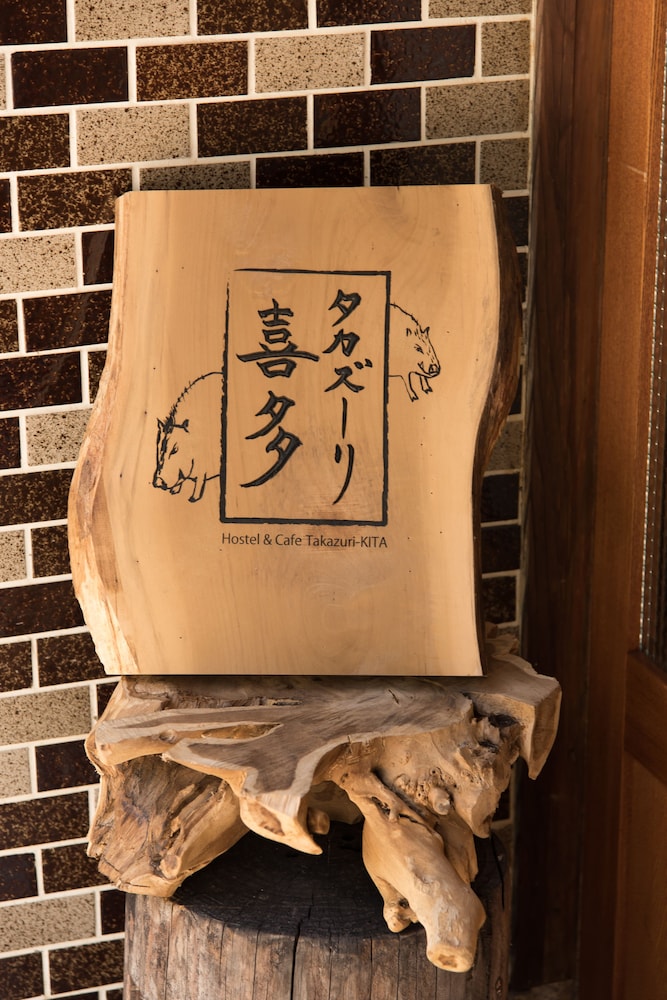 タカズーリ
喜多
Hostel & Cafe Takazuri-KITA